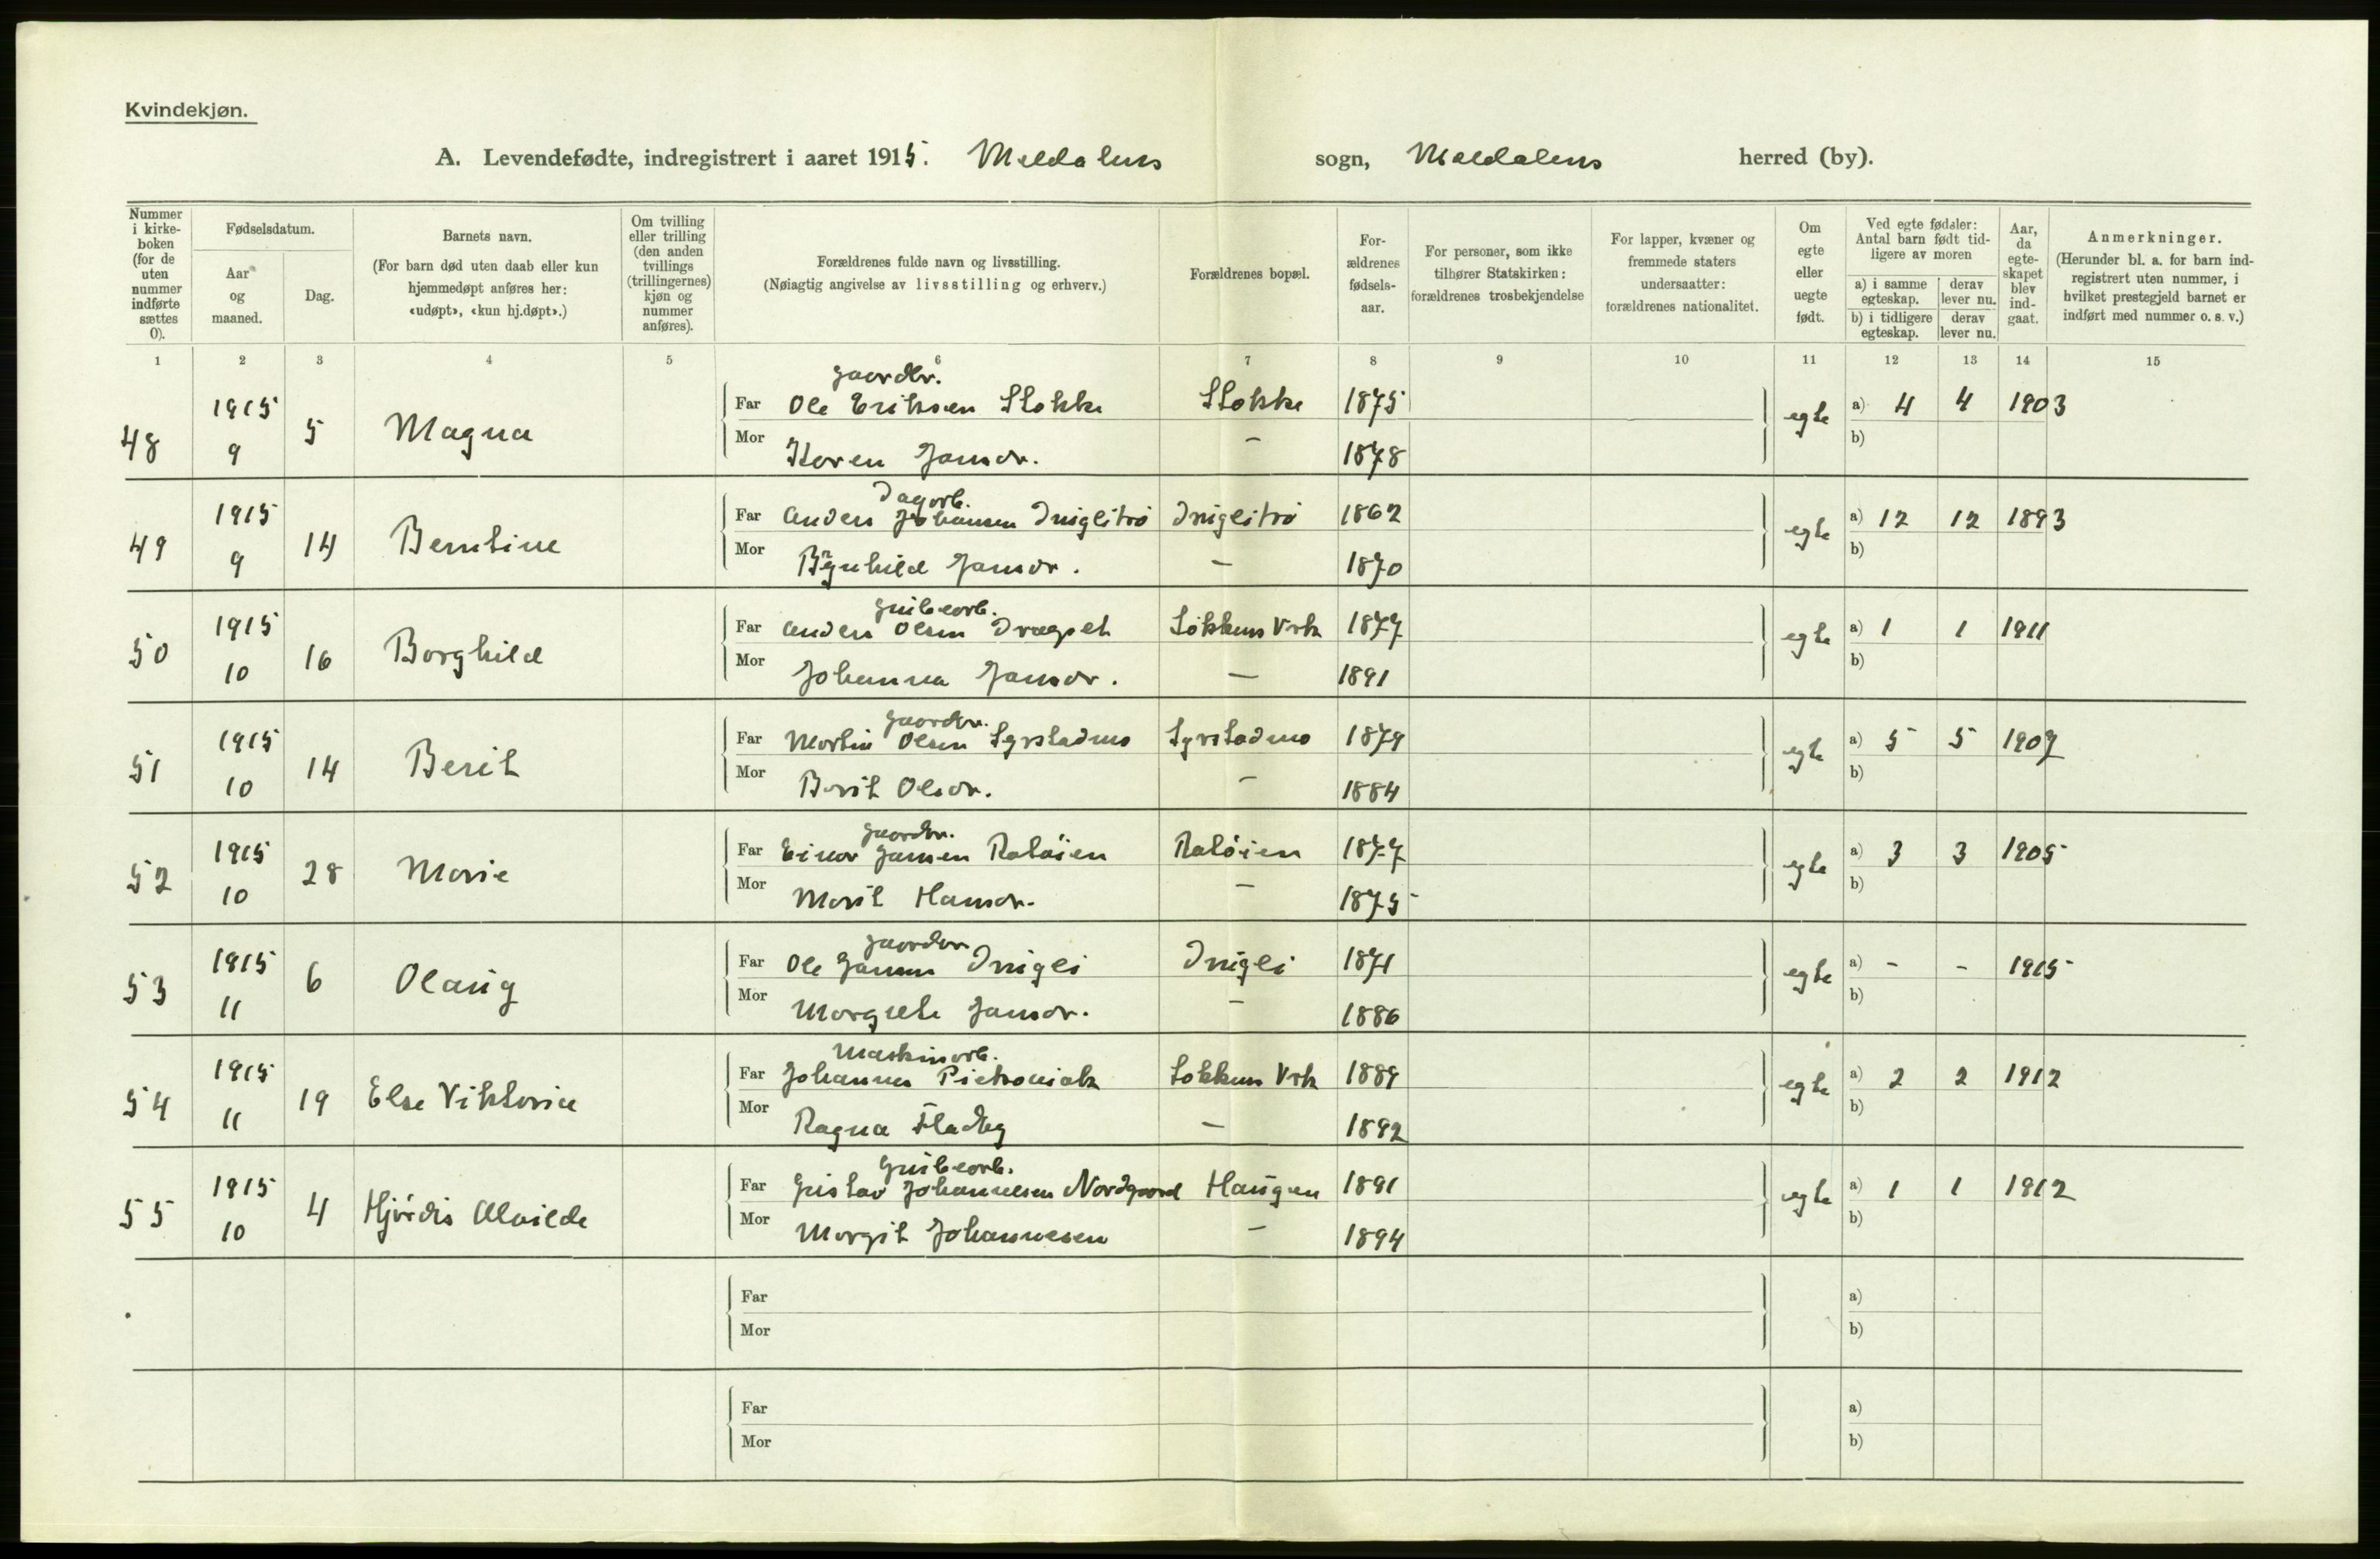 Kvindekjøn.
A. Levendefødte, indregistrert i aaret 1915. Meldalens sogn, Meldalens herred (by).
Nummer i kirke-boken (for de uten nummer indførte sættes 0).
Fødselsdatum.
Aar og maaned.
Dag.
Barnets navn.
(For barn død uten daab eller kun hjemmedøpt anføres her: «udøpt», «kun hj.døpt».)
Om tvilling eller trilling (den anden tvillings (trillingernes) kjøn og nummer anføres).
Forældrenes fulde navn og livsstilling.
(Nøiagtig angivelse av livsstilling og erhverv.)
Forældrenes bopæl.
For-ældrenes fødsels-aar.
For personer, som ikke tilhører Statskirken: forældrenes trosbekjendelse
For lapper, kvæner og fremmede staters undersaatter: forældrenes nationalitet.
Om egte eller uegte født.
Ved egte fødsler: Antal barn født tid-ligere av moren
a) i samme egteskap. derav lever nu.
b) i tidligere egteskap. derav lever nu.
Aar, da egte-skapet blev ind-gaat.
Anmerkninger.
(Herunder bl. a. for barn ind-registrert uten nummer, i hvilket prestegjeld barnet er indført med nummer o. s. v.)
1 2 3 4 5 6 7 8 9 10 11 12 13 14 15
gaardbr.
48 1915 9 5 Magna Far Ole Eriksen Stokke Stokke 1875 egte a) 4 4 1903
Mor Karen Jansdr. - 1878 b)
Dagarb.
49 1915 9 14 Berntine Far Anders Johansen Iniglitrø Iniglitrø 1862 egte a) 12 12 1893
Mor Brynhild Jansdr. - 1870 b)
Grubearb.
50 1915 10 16 Borghild Far Anders Olsen Dragset Løkkens Vrk 1877 egte a) 1 1 1911
Mor Johanna Jansdr. - 1891 b)
Gaardbr.
51 1915 10 14 Berit Far Martin Olsen Syrstadmo Syrstadmo 1879 egte a) 5 5 1907
Mor Berit Olsdr. - 1884 b)
Gaardbr.
52 1915 10 28 Marie Far Einar Jansen Raløien Raløien 1877 egte a) 3 3 1905
Mor Marit Hansdr. - 1875 b)
Gaardbr.
53 1915 11 6 Olaug Far Ole Jansen Inigli Inigli 1871 egte a) - - 1915
Mor Margrete Jansdr. - 1886 b)
Maskinarb.
54 1915 11 19 Else Viktoria Far Johannes Pietroniak Løkkens Vrk 1889 egte a) 2 2 1912
Mor Ragna - 1892 b)
Grubearb.
55 1915 10 4 Hjørdis Alvilde Far Gustav Johannesen Nordgaard Haugen 1891 egte a) 1 1 1912
Mor Margit Johannesen - 1894 b)
Far a)
Mor b)
Far a)
Mor b)